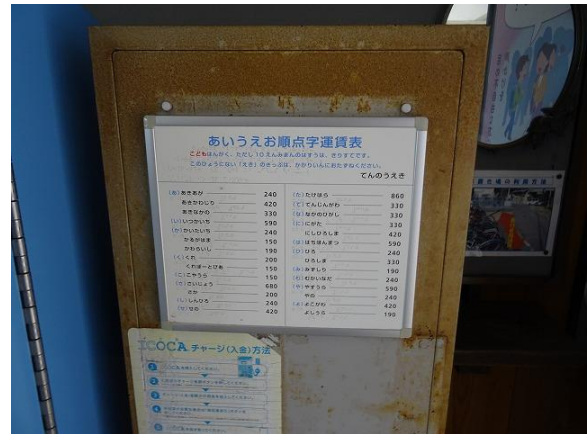 あいうえお順点字運賃表
こどもはんがく、ただし10えんみまんのはすうは、きりすてです。
このひょうにない「えき」のきっぷは、かかりいんにおたずねください。
てんのうえき
(あ)あきあが 240
あきかわじり 420
あきなかの 330
(い)いつかいち 590
(か)かいたいち 240
かるがはま 150
かわらいし 190
(く)くれ 200
くれぽーとぴあ 150
(こ)こやうら 150
(さ)さいじょう 680
さか 200
(し)しんひろ 240
(せ)せの 420
(た)たけはら 860
(て)てんじんがわ 330
(な)なかのひがし 330
(に)にがた 330
にしひろしま 420
(は)はちほんまつ 590
(ひ)ひろ 240
ひろしま 330
(み)みずしり 190
(む)むかいなだ 240
(や)やすうら 590
やの 240
(よ)よこがわ 420
よしうら 190
ICOCA チャージ(入金)方法
1
2
3
4
5
の利用方法